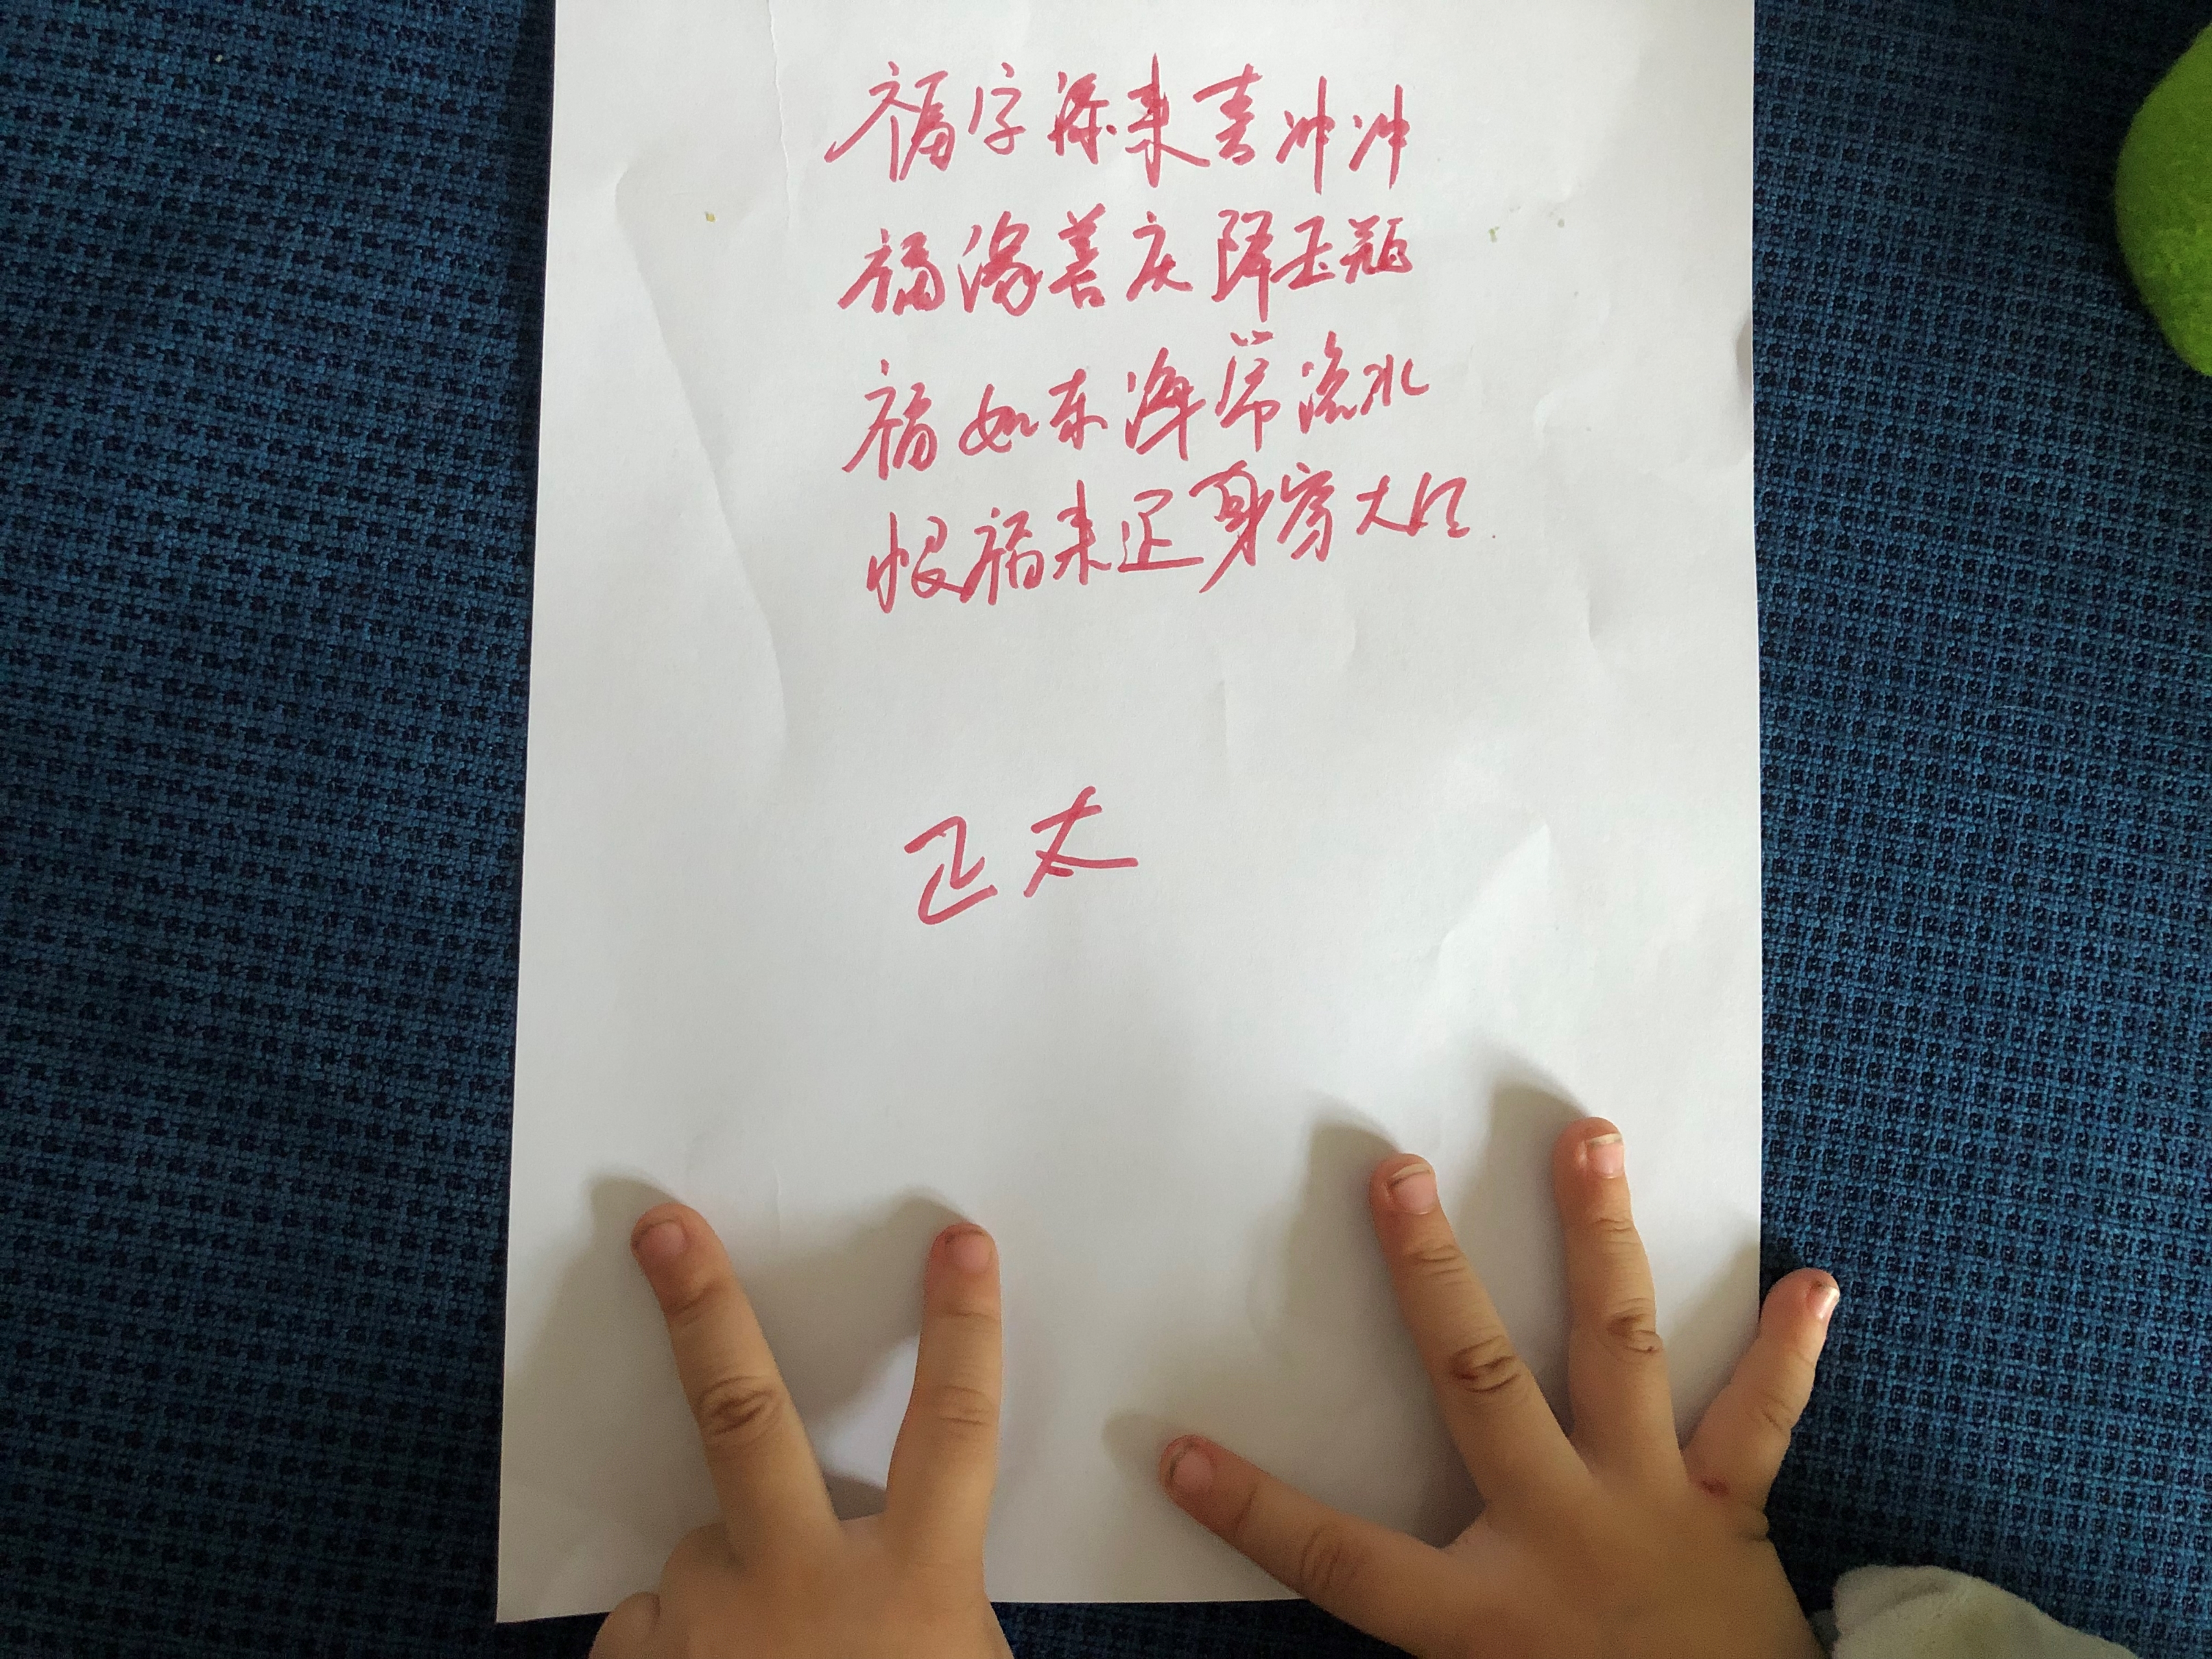 福字添来喜冲冲
福缘善庆降玉瓶
福如东海常流水
恨福来迟身穿大红
正太